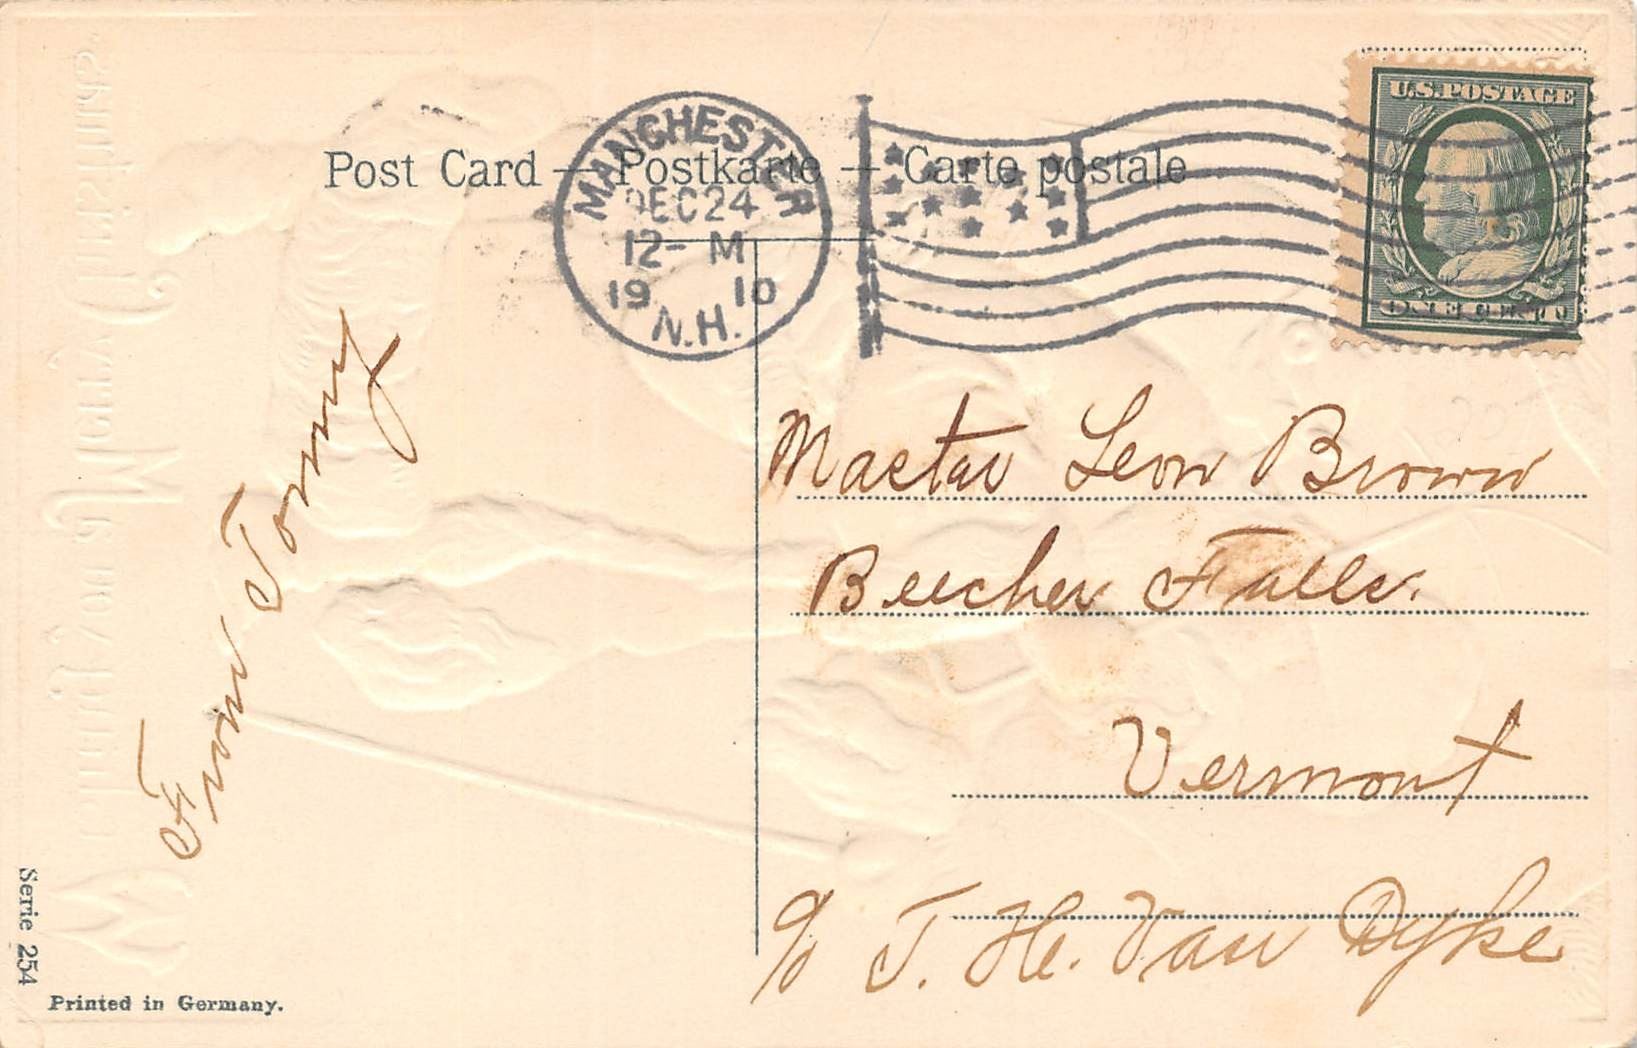 Post Card — Postkarte — Carte postale
MANCHESTER
DEC 24
12- M
19 10
N.H.
U.S. POSTAGE
From Tommy
Master Leon Brown
Beecher Falls.
Vermont
c/o T. H. Van Dyke
Serie 254
Printed in Germany.